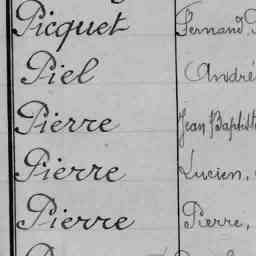 Picquet Fernand,
Piel André
Pierre Jean Baptiste
Pierre Lucien,
Pierre Pierre,